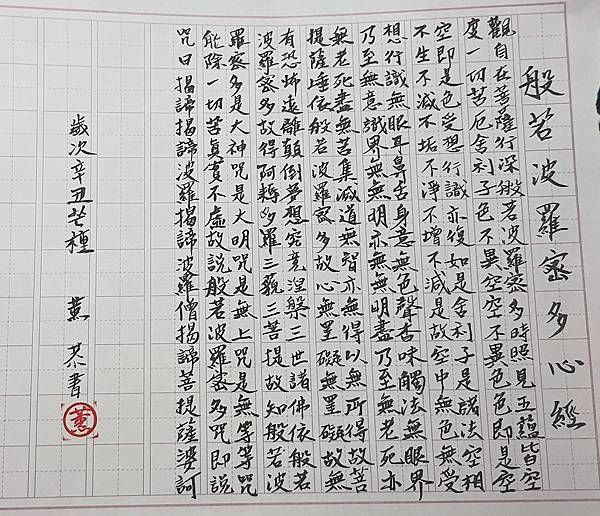 般若波羅密多心經
觀自在菩薩行深般若波羅密多時照見五蘊皆空
度一切苦厄舍利子色不異空空不異色色即是空
空即是色受想行識亦復如是舍利子是諸法空相
不生不滅不垢不淨不增不減是故空中無色無受
想行識無眼耳鼻舌身意無色聲香味觸法無眼界
乃至無意識界無無明亦無無明盡乃至無老死亦
無老死盡無苦集滅道無智亦無得以無所得故菩
提薩埵依般若波羅密多故心無罣礙無罣礙故無
有恐怖遠離顛倒夢想究竟涅槃三世諸佛依般若
波羅密多故得阿耨多羅三藐三菩提故知般若波
羅密多是大神咒是大明咒是無上咒是無等等咒
能除一切苦真實不虛故說般若波羅密多咒即說
咒曰揭諦揭諦波羅揭諦波羅僧揭諦菩提薩婆訶
歲次辛丑芒種 蕙 書
蕙